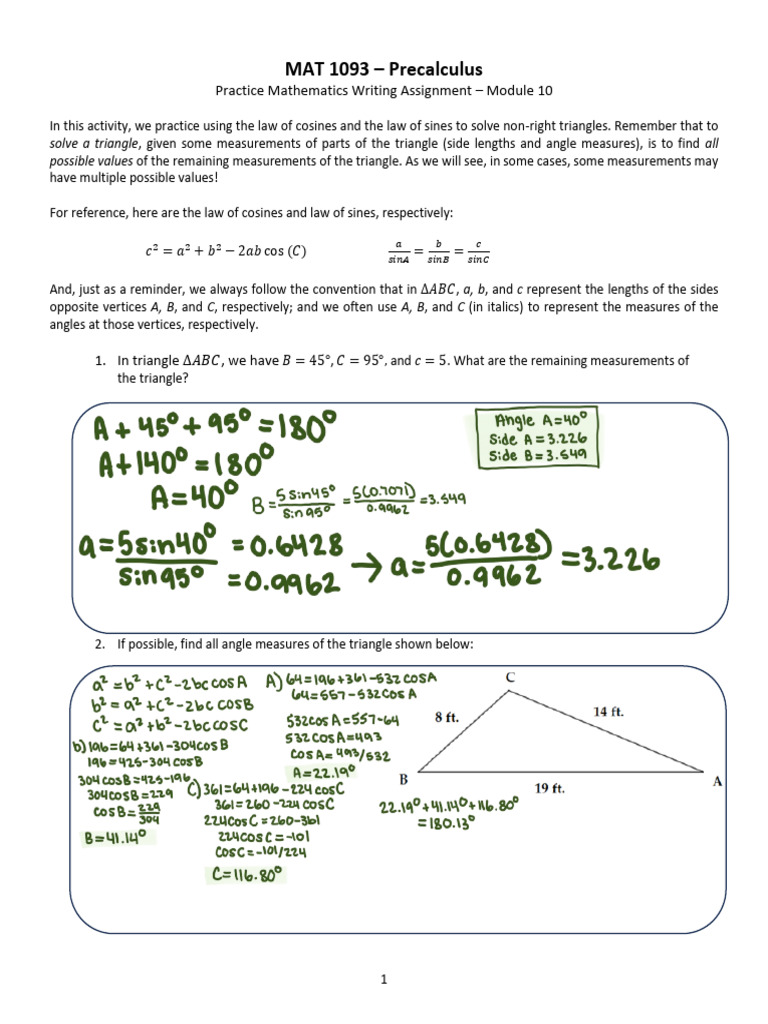 MAT 1093 – Precalculus
Practice Mathematics Writing Assignment – Module 10
In this activity, we practice using the law of cosines and the law of sines to solve non-right triangles. Remember that to
solve a triangle, given some measurements of parts of the triangle (side lengths and angle measures), is to find all
possible values of the remaining measurements of the triangle. As we will see, in some cases, some measurements may
have multiple possible values!
For reference, here are the law of cosines and law of sines, respectively:
c² = a² + b² − 2ab cos (C) a/sinA = b/sinB = c/sinC
And, just as a reminder, we always follow the convention that in ΔABC, a, b, and c represent the lengths of the sides
opposite vertices A, B, and C, respectively; and we often use A, B, and C (in italics) to represent the measures of the
angles at those vertices, respectively.
1. In triangle ΔABC, we have B = 45°, C = 95°, and c = 5. What are the remaining measurements of
the triangle?
A + 45° + 95° = 180°
A+140° = 180°
A=40°
Angle A=40°
Side A=3.226
Side B=3.549
B = 5 sin45°/sin95° = 5(0.7071)/0.9962 = 3.549
a = 5sin40°/sin95° = 0.6428/= 0.9962 → a = 5(0.6428)/0.9962 = 3.226
2. If possible, find all angle measures of the triangle shown below:
a² = b² + c² -2bc cosA
b² = a² + c² -2bc cosB
c² = a² + b² -2bc cosC
b) 196 = 64 +361 -304cosB
196 = 425 -304 cosB
304 cosB = 425 -196
304cosB = 229
cosB = 229/304
B=41.14°
A) 64=196+361-532cosA
64=557-532cosA
532cosA=557-64
532 cosA=493
cosA= 493/532
A=22.19°
C) 361=64+196 -224cosC
361=260 -224 cosC
224cosC =260-361
224cosC =-101
cosC = -101/224
C=116.80°
C
8 ft.
14 ft.
B
A
19 ft.
22.19°+41.14°+116.80°
=180.13°
1